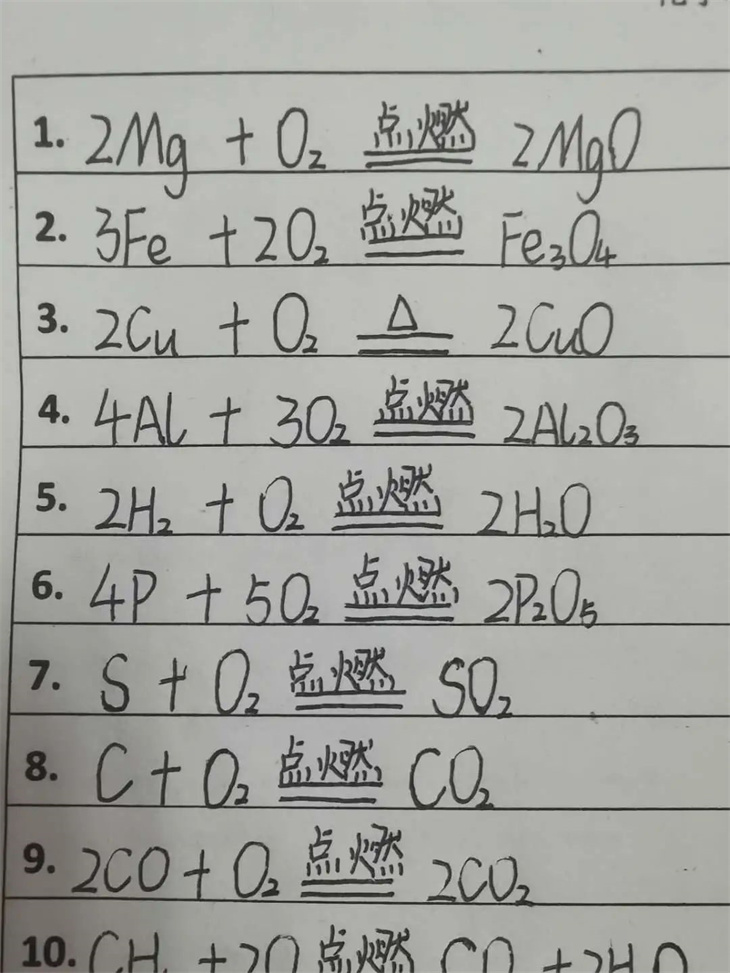 1. 2Mg + O₂ 点燃 2MgO
2. 3Fe + 2O₂ 点燃 Fe₃O₄
3. 2Cu + O₂ △ 2CuO
4. 4Al + 3O₂ 点燃 2Al₂O₃
5. 2H₂ + O₂ 点燃 2H₂O
6. 4P + 5O₂ 点燃 2P₂O₅
7. S + O₂ 点燃 SO₂
8. C + O₂ 点燃 CO₂
9. 2CO + O₂ 点燃 2CO₂
10. 点燃